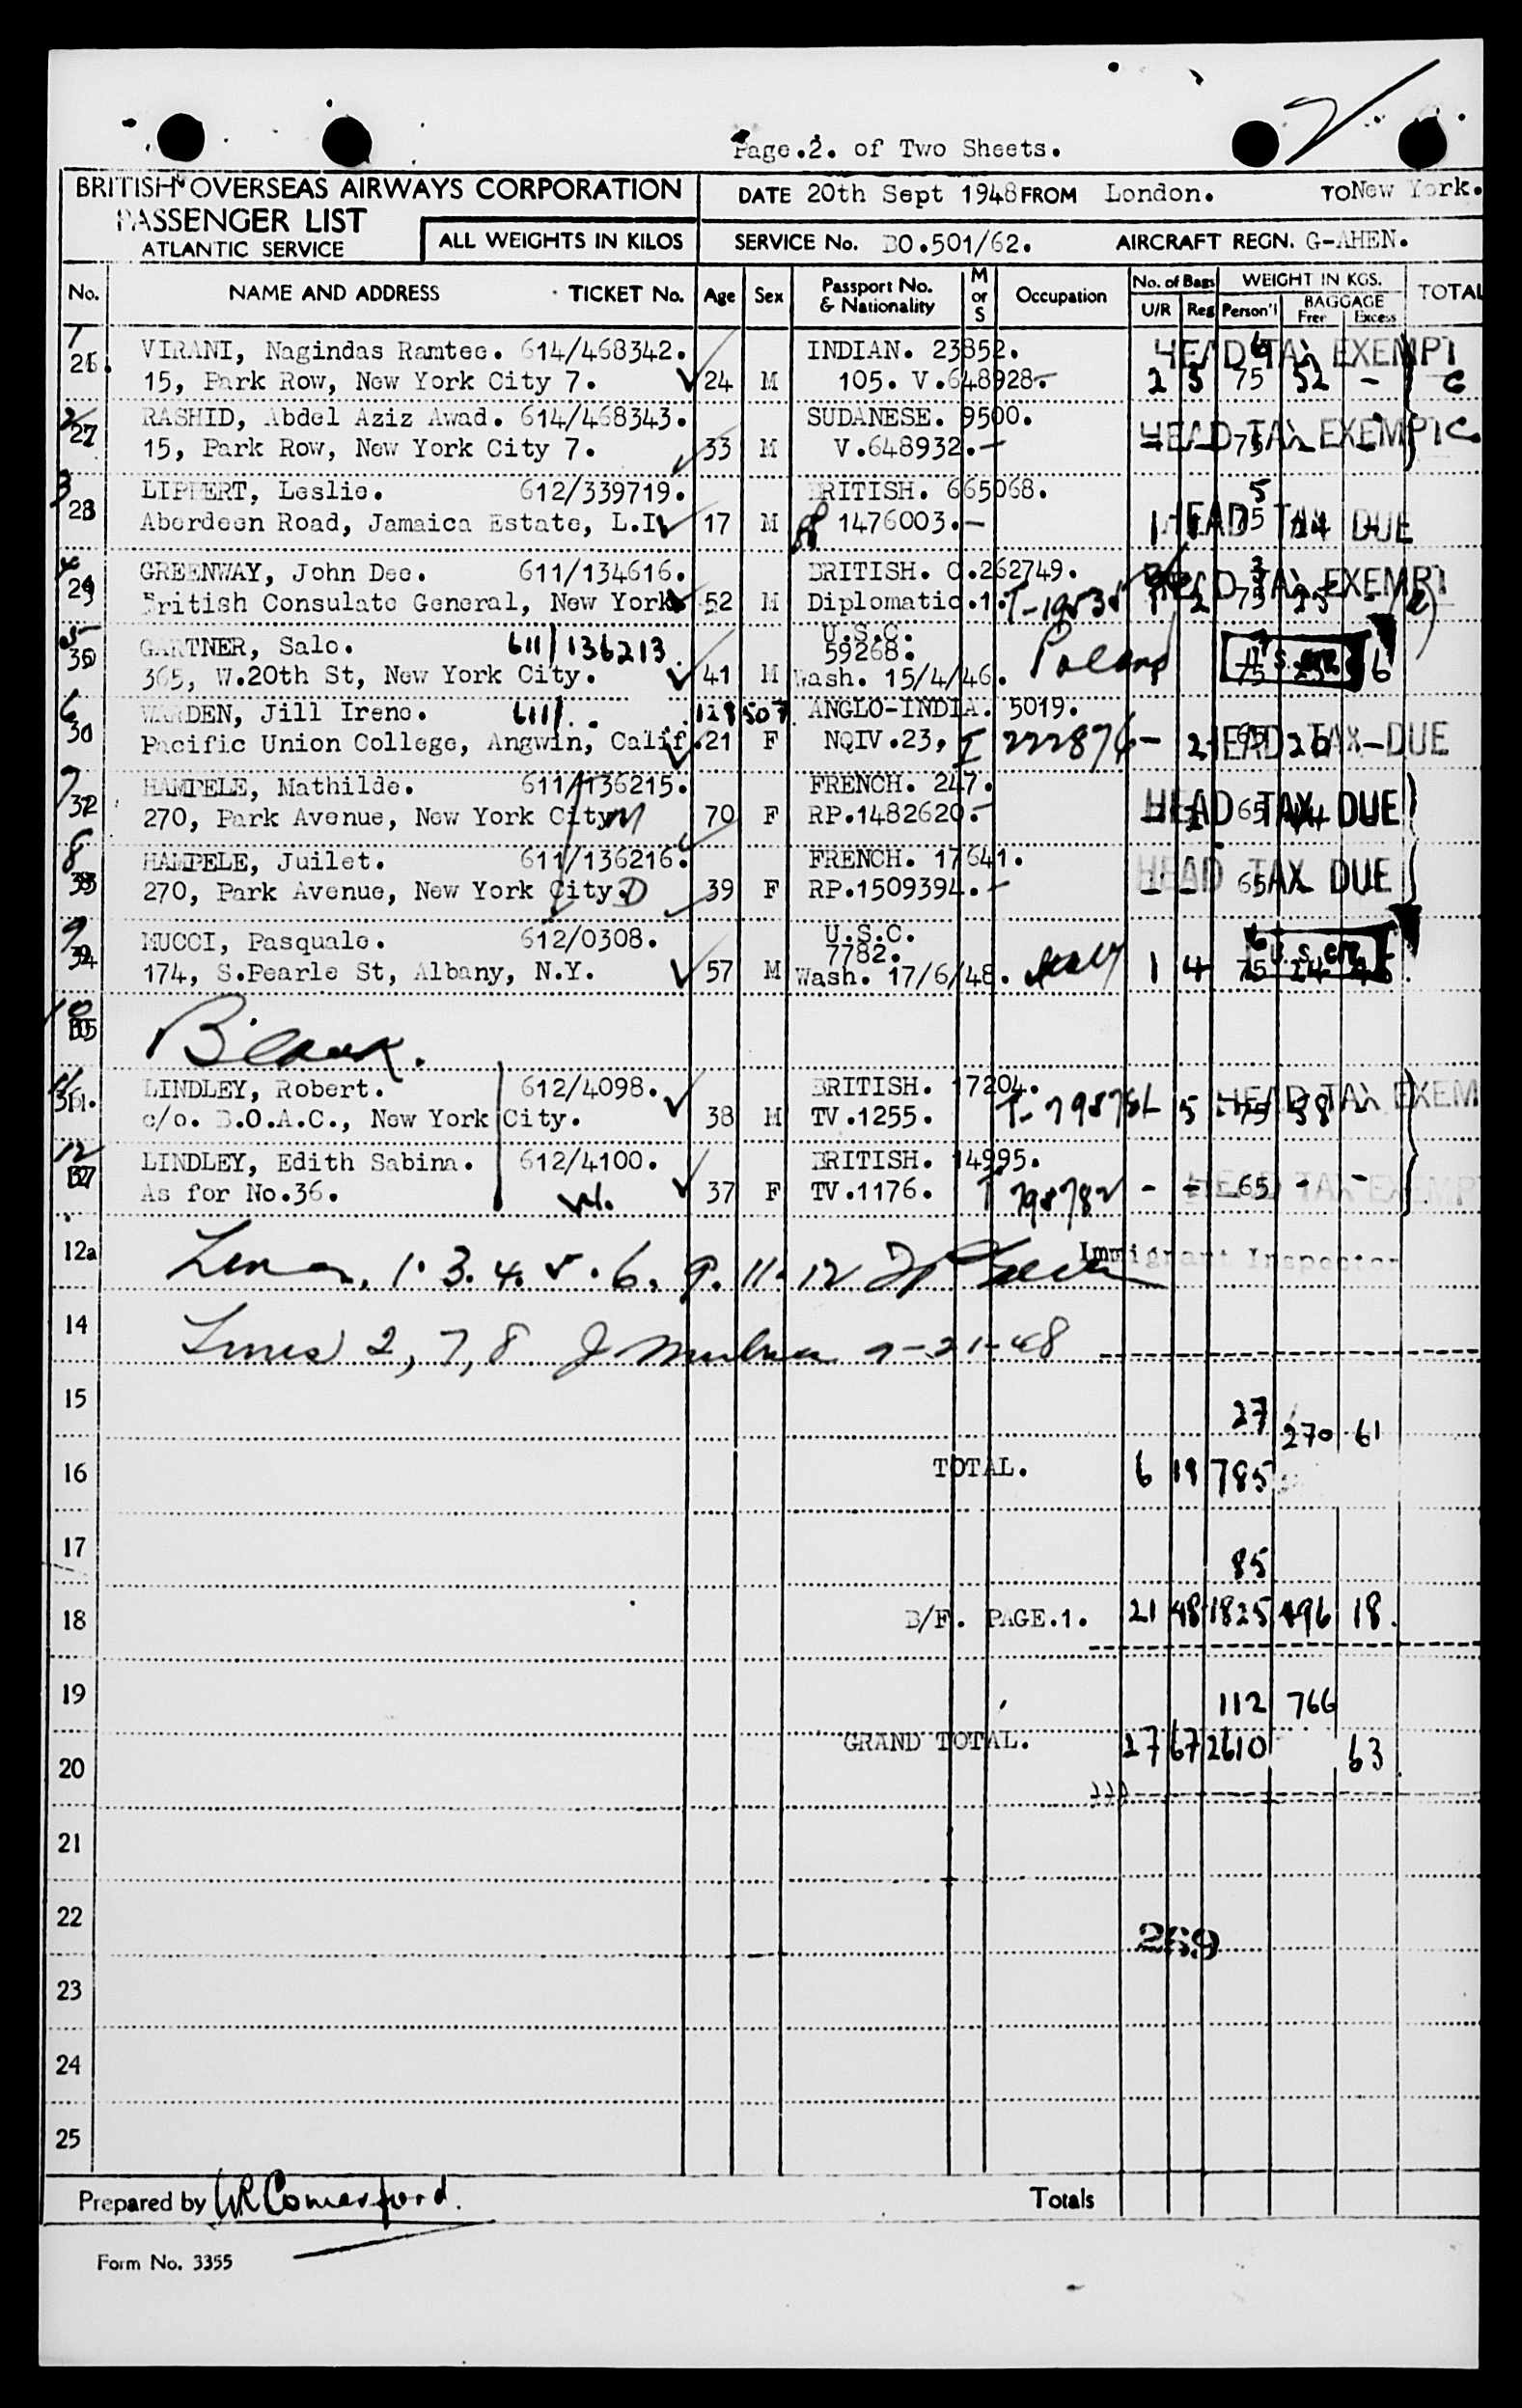 Page.2. of Two Sheets.
BRITISH OVERSEAS AIRWAYS CORPORATION
PASSENGER LIST
ATLANTIC SERVICE
ALL WEIGHTS IN KILOS
DATE 20th Sept 1948 FROM London. TO New York.
SERVICE No. BO.501/62. AIRCRAFT REGN. G-AHEN.
No. NAME AND ADDRESS TICKET No. Age Sex Passport No. & Nationality M or S Occupation No. of Bags U/R Reg WEIGHT IN KGS. Person'l BAGGAGE Free Excess TOTAL
1 VIRANI, Nagindas Ramtee. 614/468342. INDIAN. 23852. HEAD TAX EXEMPT
26. 15, Park Row, New York City 7. 24 M 105. V.648928. 2 3 75 52 - C
2 RASHID, Abdel Aziz Awad. 614/468343. SUDANESE. 9500. HEAD TAX EXEMPT C.
27 15, Park Row, New York City 7. 33 M V.648932. - - 75 - -
3 LIPPERT, Leslie. 612/339719. BRITISH. 665068. 5
28 Aberdeen Road, Jamaica Estate, L.I. 17 M 1476003. 1 HEAD TAX DUE
4 GREENWAY, John Dee. 611/134616. BRITISH. C.262749. HEAD TAX EXEMPT
29 British Consulate General, New York. 52 M Diplomatic.1. 2 75 25 -
5 GARTNER, Salo. 611/136213. U.S.C. 59268. Poland
365, W.20th St, New York City. 41 M Wash. 15/4/46. 75 6
6 WARDEN, Jill Irene. 611/128507 ANGLO-INDIA. 5019.
30 Pacific Union College, Angwin, Calif. 21 F NQIV.23, I 222876 - 2 HEAD TAX DUE 65 26 -
7 HAMPELE, Mathilde. 611/136215. FRENCH. 247.
32 270, Park Avenue, New York City. M 70 F RP.1482620. HEAD TAX DUE 65
8 HAMPELE, Juilet. 611/136216. FRENCH. 17641.
33 270, Park Avenue, New York City. D 39 F RP.1509394. - - 65 HEAD TAX DUE
9 MUCCI, Pasquale. 612/0308. U.S.C. 7782. U.S. CIT
34 174, S.Pearle St, Albany, N.Y. 57 M Wash. 17/6/48. Italy 1 4 75 24
10
35 Blank.
11 LINDLEY, Robert. 612/4098. BRITISH. 17204. HEAD TAX EXEM
36. c/o. B.O.A.C., New York City. 38 M TV.1255. 5 75 58 -
12 LINDLEY, Edith Sabina. 612/4100. BRITISH. 14995.
37 As for No.36. W. 37 F TV.1176. T 798782 - - 65 - - HEAD TAX EXEMP
12a Lines, 1. 3. 4. 5. 6. 9. 11. 12 Immigrant Inspector
14 Lines 2, 7, 8 J 9-21-48
15 27 270 61
16 TOTAL. 6 19 785
17 85
18 B/F. PAGE.1. 21 48 1825 496 18.
19 112 766
GRAND TOTAL. 27 67 2610 63
20
21
22 269
23
24
25
Prepared by WR Comerford. Totals
Form No. 3355